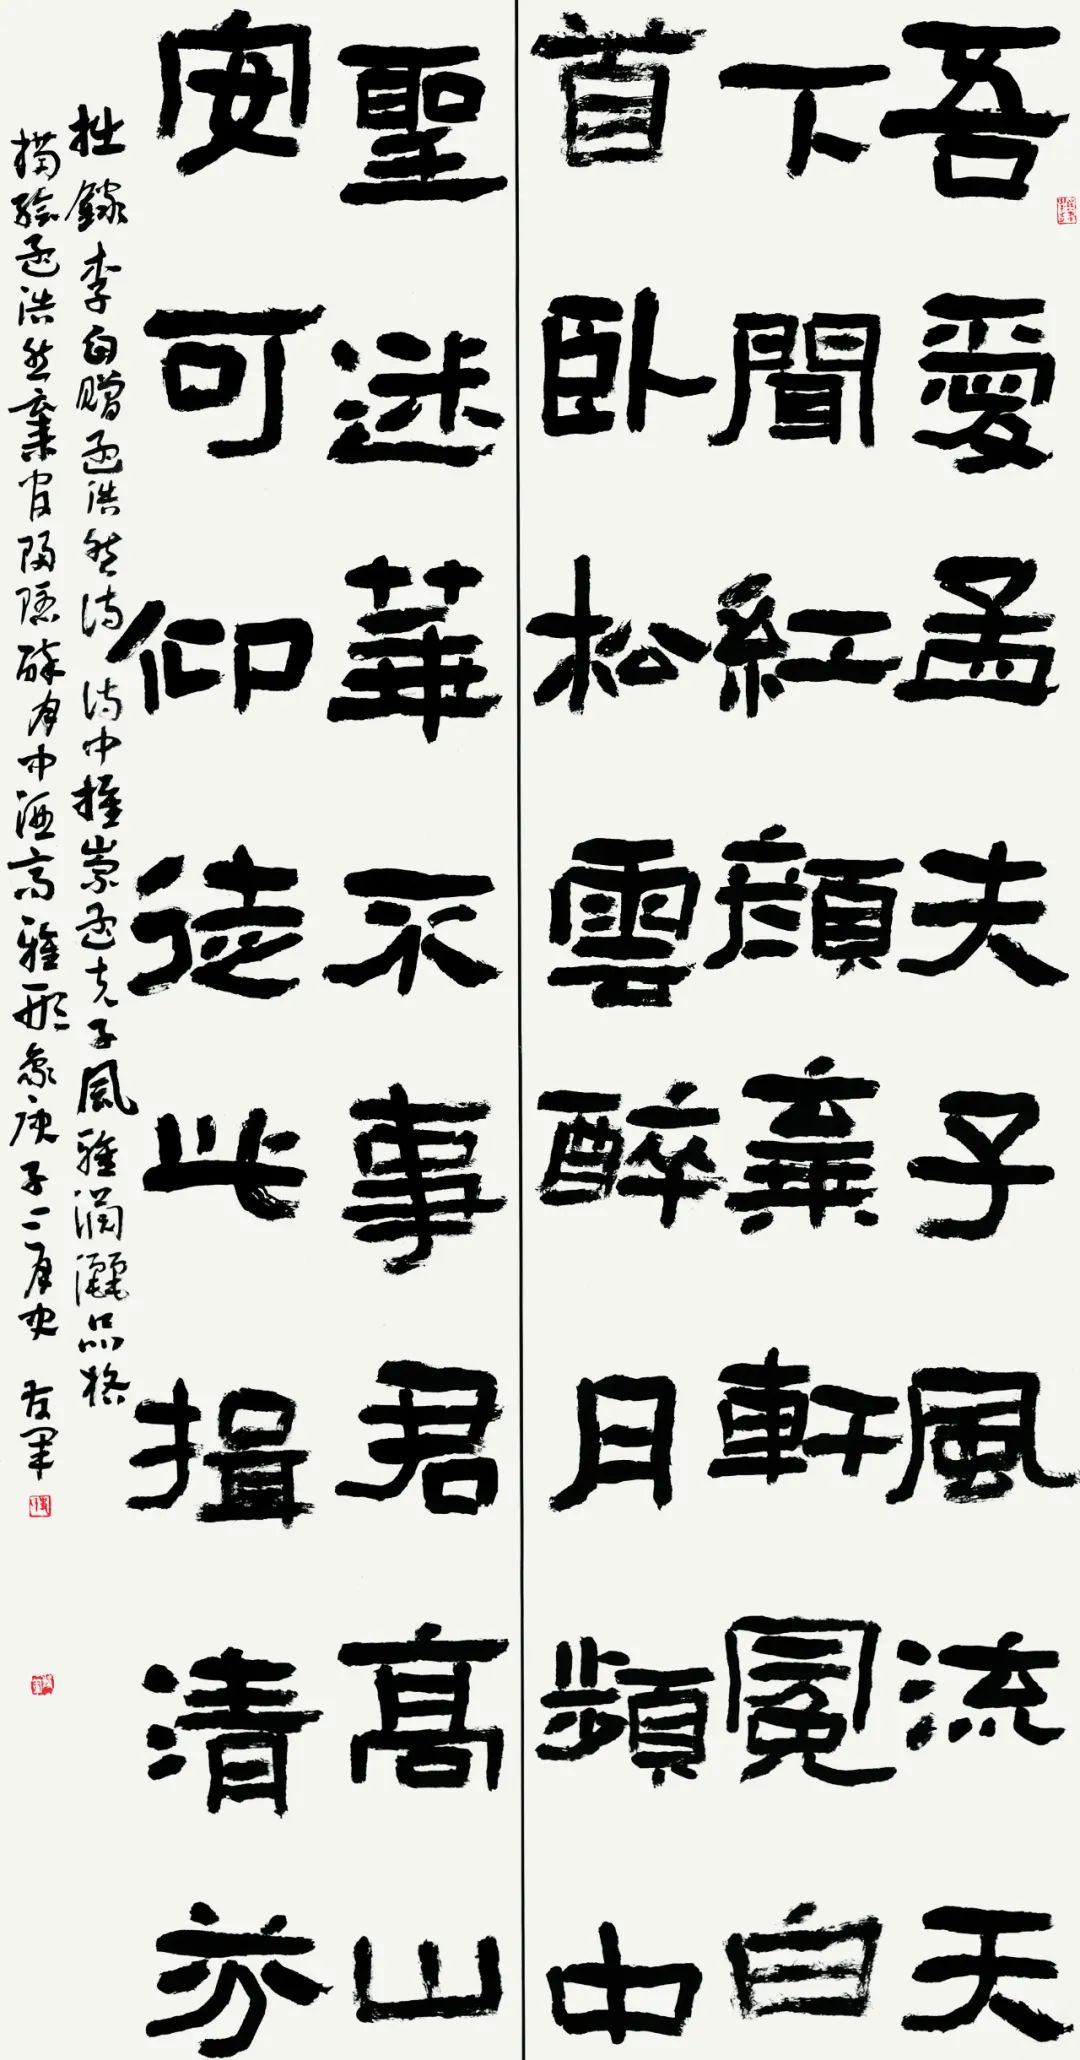 吾愛孟夫子風流天
下聞紅顏棄軒冕白
首臥松雲醉月頻中
聖迷華不事君高山
安可仰徒此揖清芬
拙錄李白贈孟浩然詩 詩中推崇孟夫子風雅瀟灑品格
描繪孟浩然棄官隱醉月中酒高雅形象庚子二月 友軍